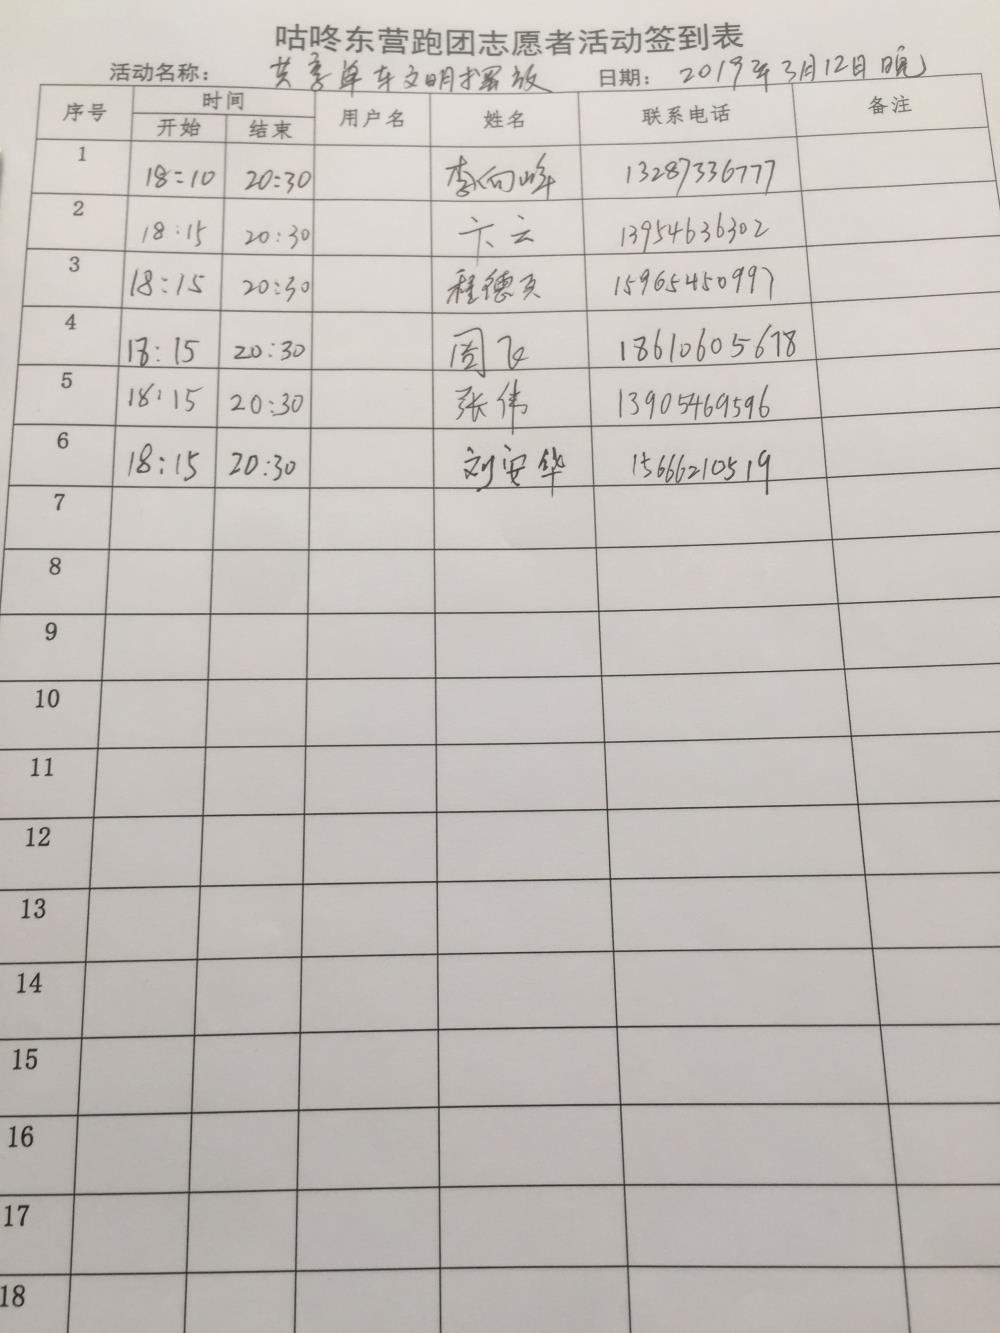 咕咚东营跑团志愿者活动签到表
活动名称： 共享单车文明摆放 日期： 2019年3月12日晚
序号 时间 用户名 姓名 联系电话 备注
开始 结束
1 18:10 20:30 李向峰 13287336777
2 18:15 20:30 卞云 13954636302
3 18:15 20:30 程德 15965450997
4 18:15 20:30 周飞 18610605678
5 18:15 20:30 张伟 13905469596
6 18:15 20:30 刘安华 15666210519
7
8
9
10
11
12
13
14
15
16
17
18